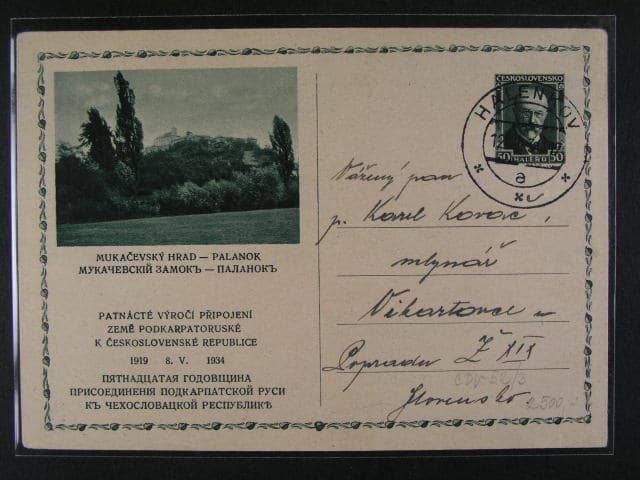 MUKAČEVSKÝ HRAD — PALANOK
МУКАЧЕВСКІЙ ЗАМОКЪ — ПАЛАНОКЪ
PATNÁCTÉ VÝROČÍ PŘIPOJENÍ
ZEMĚ PODKARPATORUSKÉ
K ČESKOSLOVENSKÉ REPUBLICE
1919 8. V. 1934
ПЯТНАДЦАТАЯ ГОДОВЩИНА
ПРИСОЕДИНЕНІЯ ПОДКАРПАТСКОЙ РУСИ
КЪ ЧЕХОСЛОВАЦКОЙ РЕСПУБЛИКѢ
ČESKOSLOVENSKO
50 HALÉŘŮ 50
HALENKOV
a
Vážený pan
p. Karel Kovač,
mlynář
Vikartovce u
Popradu Ž XIX
Slovensko
2500